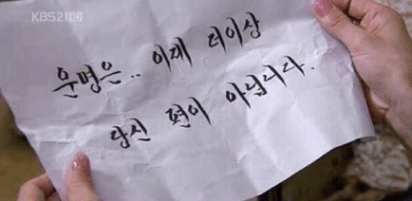 KBS2
운명은.. 이제 더이상
당신 편이 아닙니다.